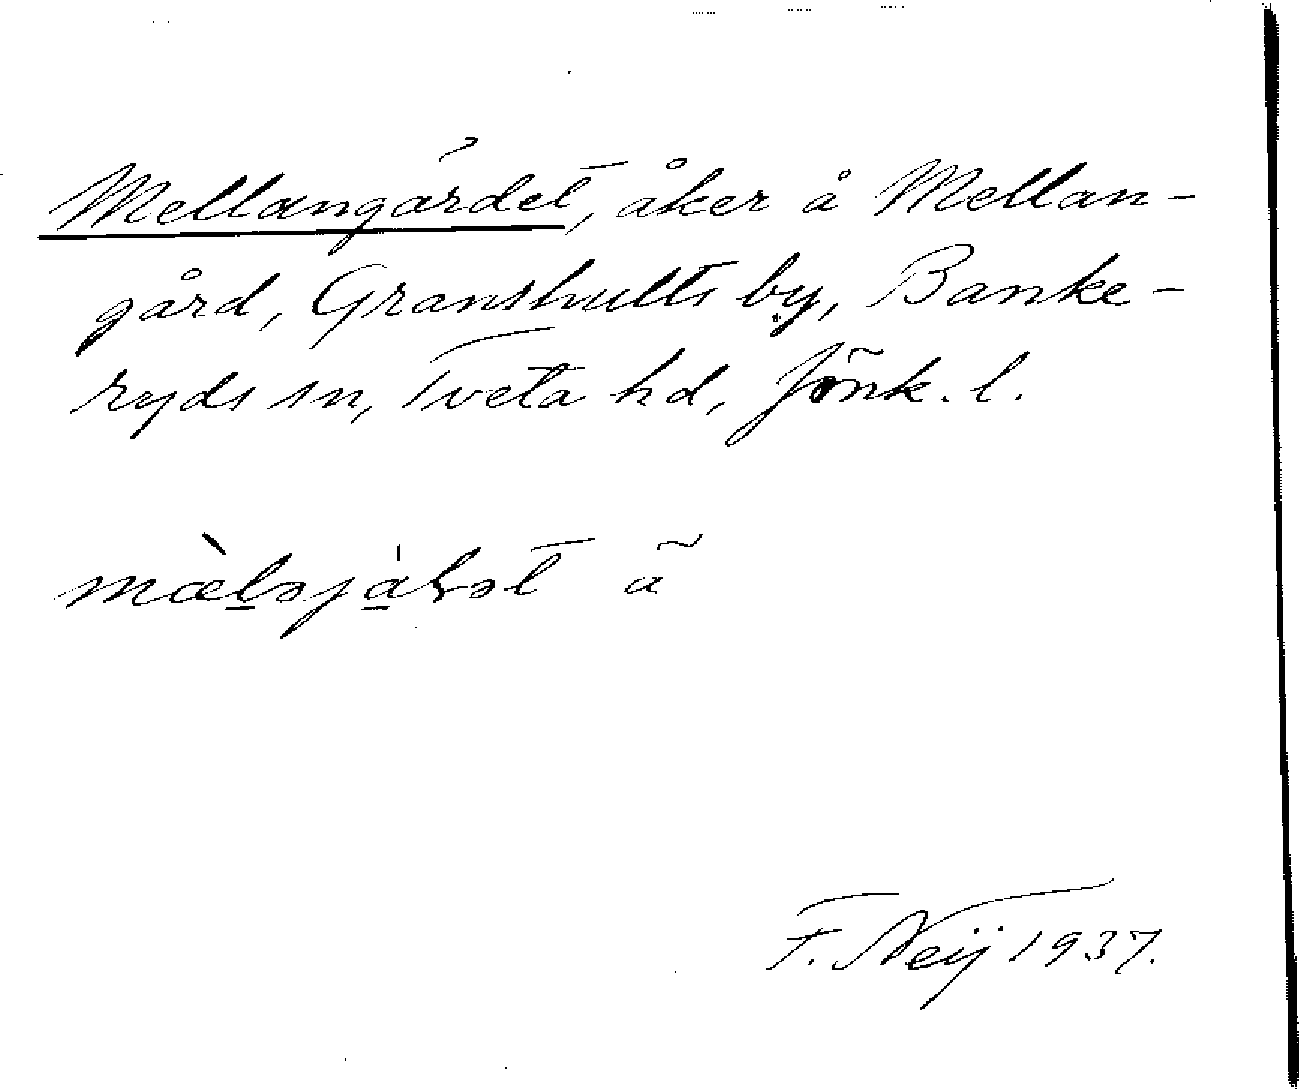 Mellangärdet, åker å Mellan-
gård, Granshults by, Banke-
ryds sn, Tveta hd, Jönk. l.
ã
F. Neij 1937.